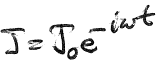 J = J₀e^{-iωt}